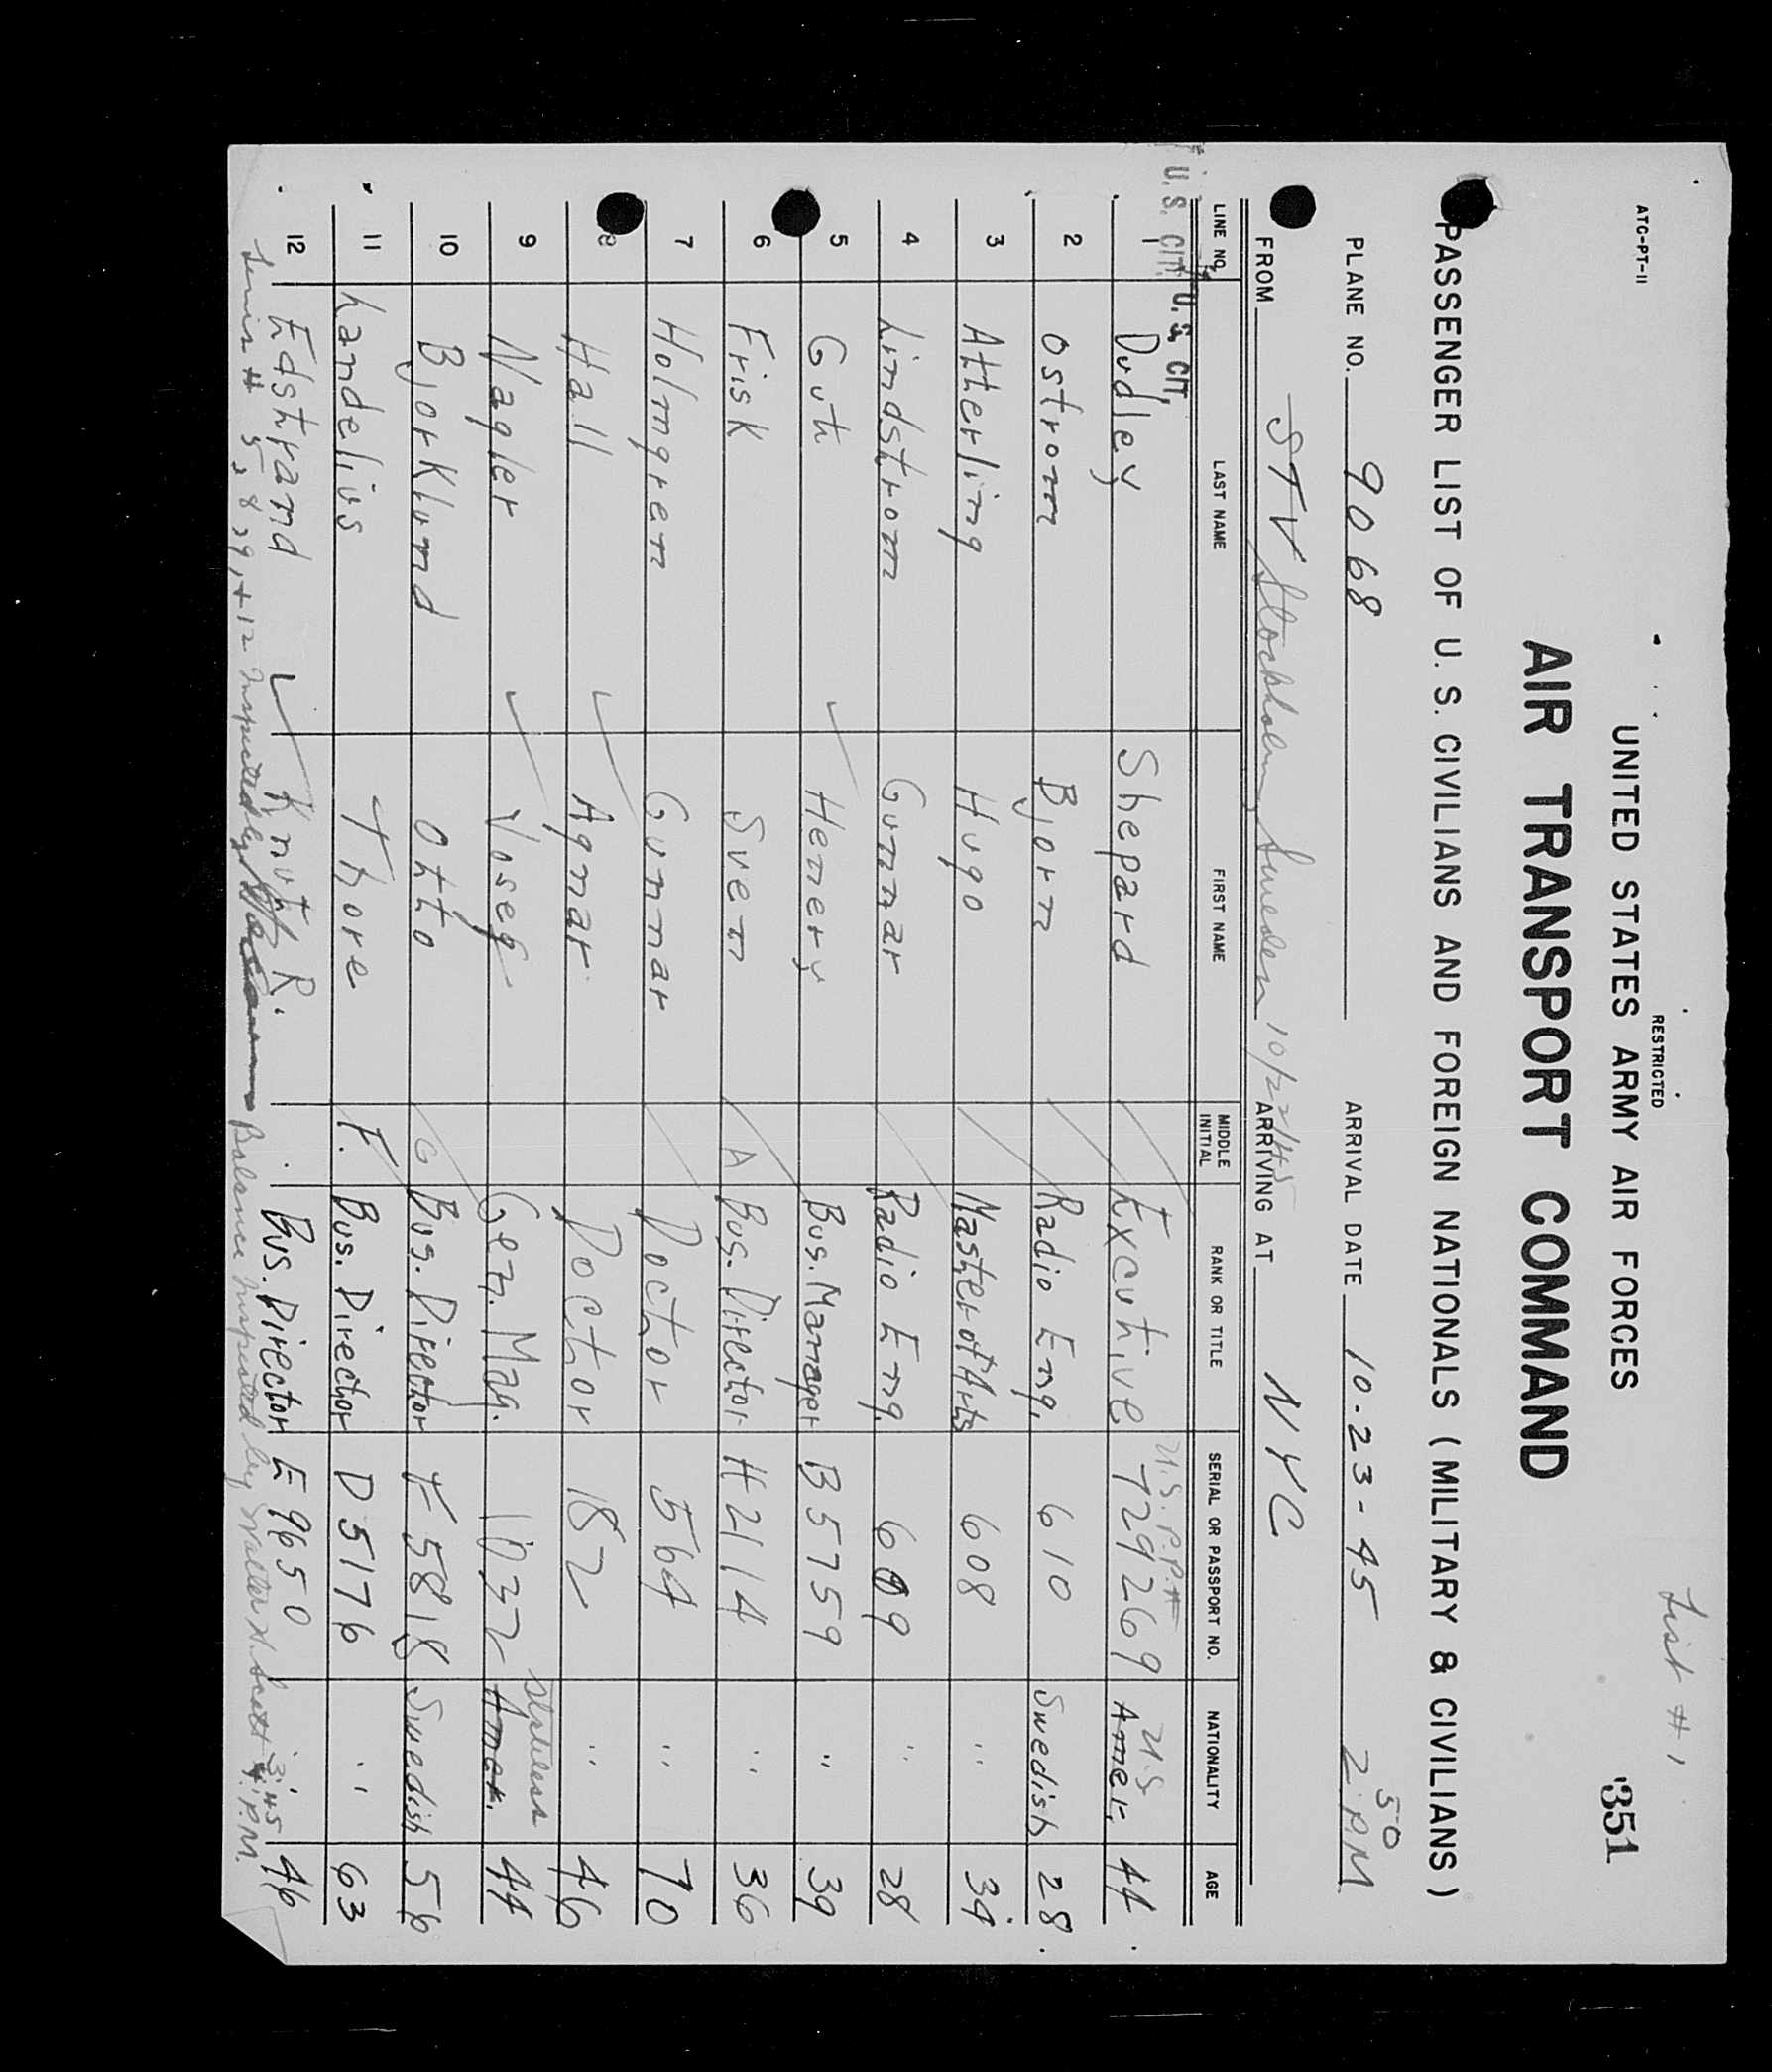 ATC-PT-11
RESTRICTED
List # 1
UNITED STATES ARMY AIR FORCES
351
AIR TRANSPORT COMMAND
PASSENGER LIST OF U. S. CIVILIANS AND FOREIGN NATIONALS (MILITARY & CIVILIANS)
PLANE NO. 9068 ARRIVAL DATE 10-23-45 2 50 PM
FROM STV Stockholm, Sweden 10/22/45 ARRIVING AT NYC
LINE NO. LAST NAME FIRST NAME MIDDLE INITIAL RANK OR TITLE SERIAL OR PASSPORT NO. NATIONALITY AGE
U.S. CIT. U.S. CIT. U.S. P.P.# U.S.
1 Dudley Shepard Excutive 729269 Amer. 44
2 Ostrom Bjorn Radio Eng. 610 Swedish 28
3 Atterling Hugo Master of Arts 608 " 34
4 Lindstrom Gunnar Radio Eng. 609 " 28
5 Guth Henery Bus. Manager B5759 " 39
6 Frisk Sven A Bus. Director H2114 " 36
7 Holmgren Gunnar Doctor 564 " 70
8 Hall Agnar Doctor 182 " 46
Stateless
9 Nagler Josef Gen. Mag. 1032 Amer. 44
10 Bjorklund Otto G Bus. Director F5818 Swedish 56
11 Landelius Thore F. Bus. Director D5176 " 63
12 Edstrand Knut R. Bus. Director E9650 " 46
# 5, 8, 9, + 12 Inspected by Balance Inspected by Walter H. Scott 3:45 P.M.